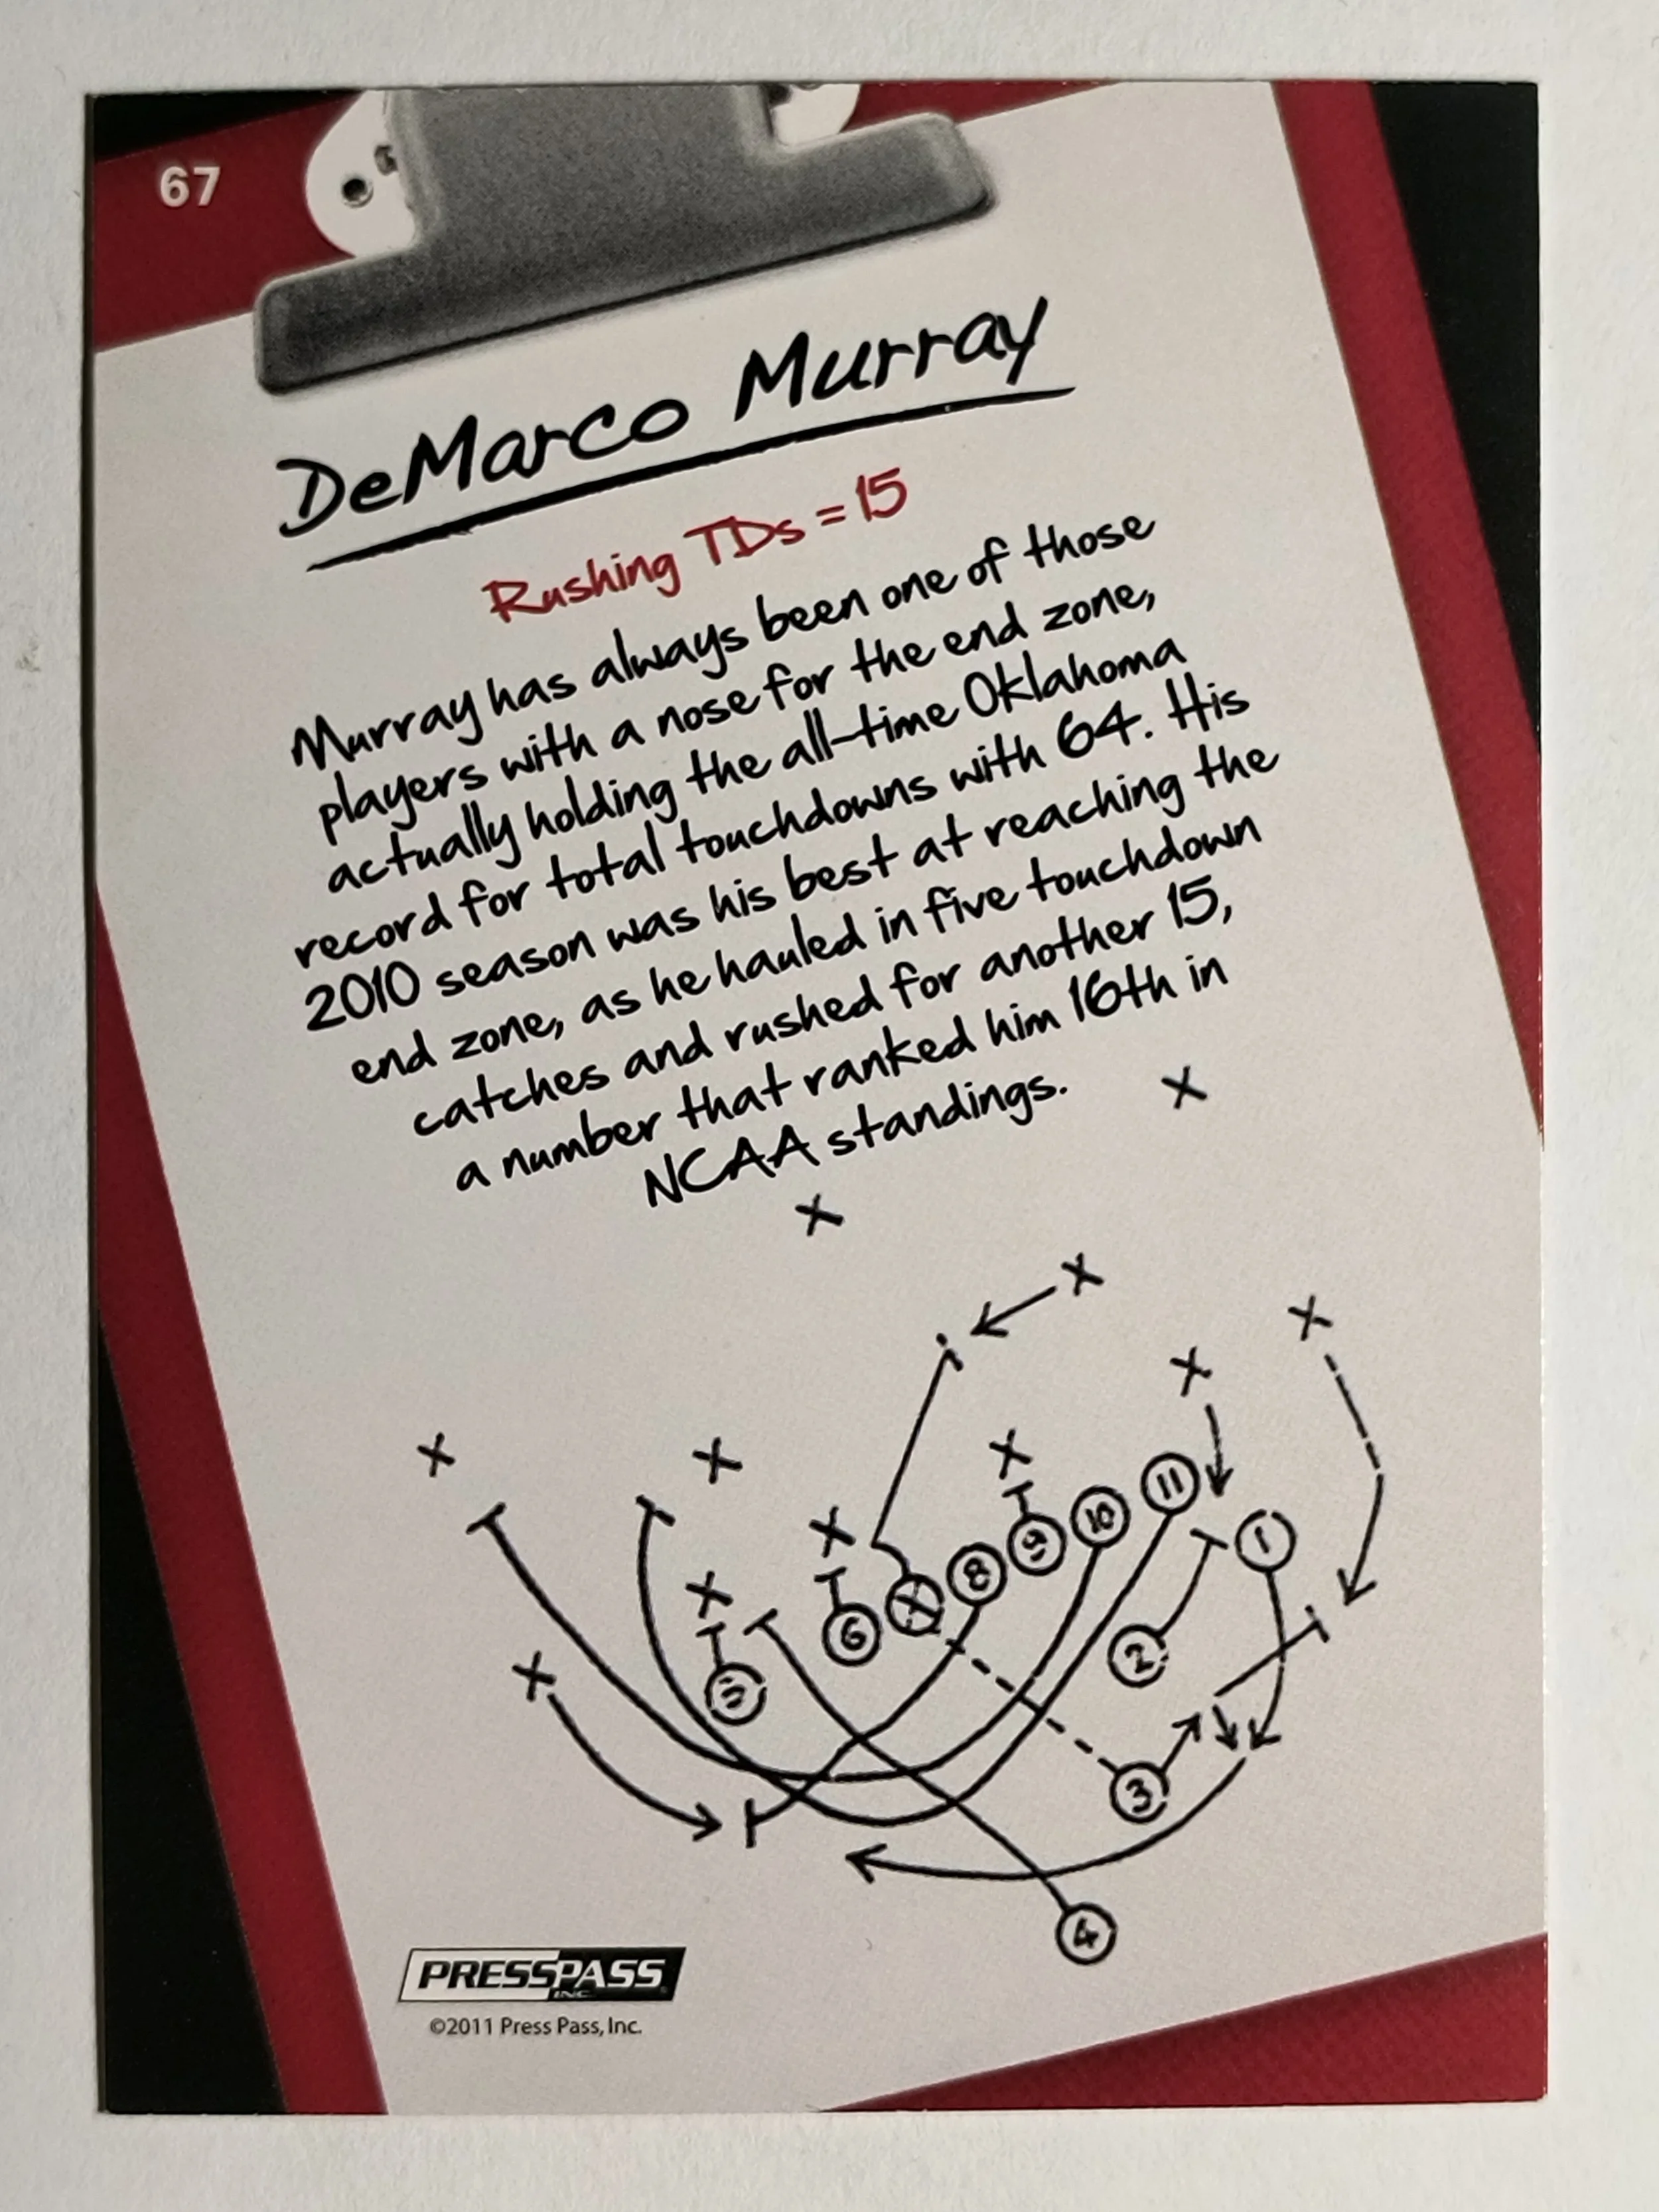 67
DeMarco Murray
Rushing TDs = 15
Murray has always been one of those
players with a nose for the end zone,
actually holding the all-time Oklahoma
record for total touchdowns with 64. His
2010 season was his best at reaching the
end zone, as he hauled in five touchdown
catches and rushed for another 15,
a number that ranked him 16th in
NCAA standings.
X
X
X
X
X
X
X
X
11
X
10
1
9
X
8
X
6
X
2
5
X
3
4
PRESSPASS
INC.
©2011 Press Pass, Inc.